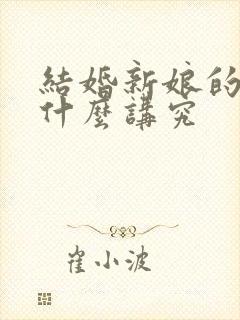 結婚新娘的
什麼講究
崔小波